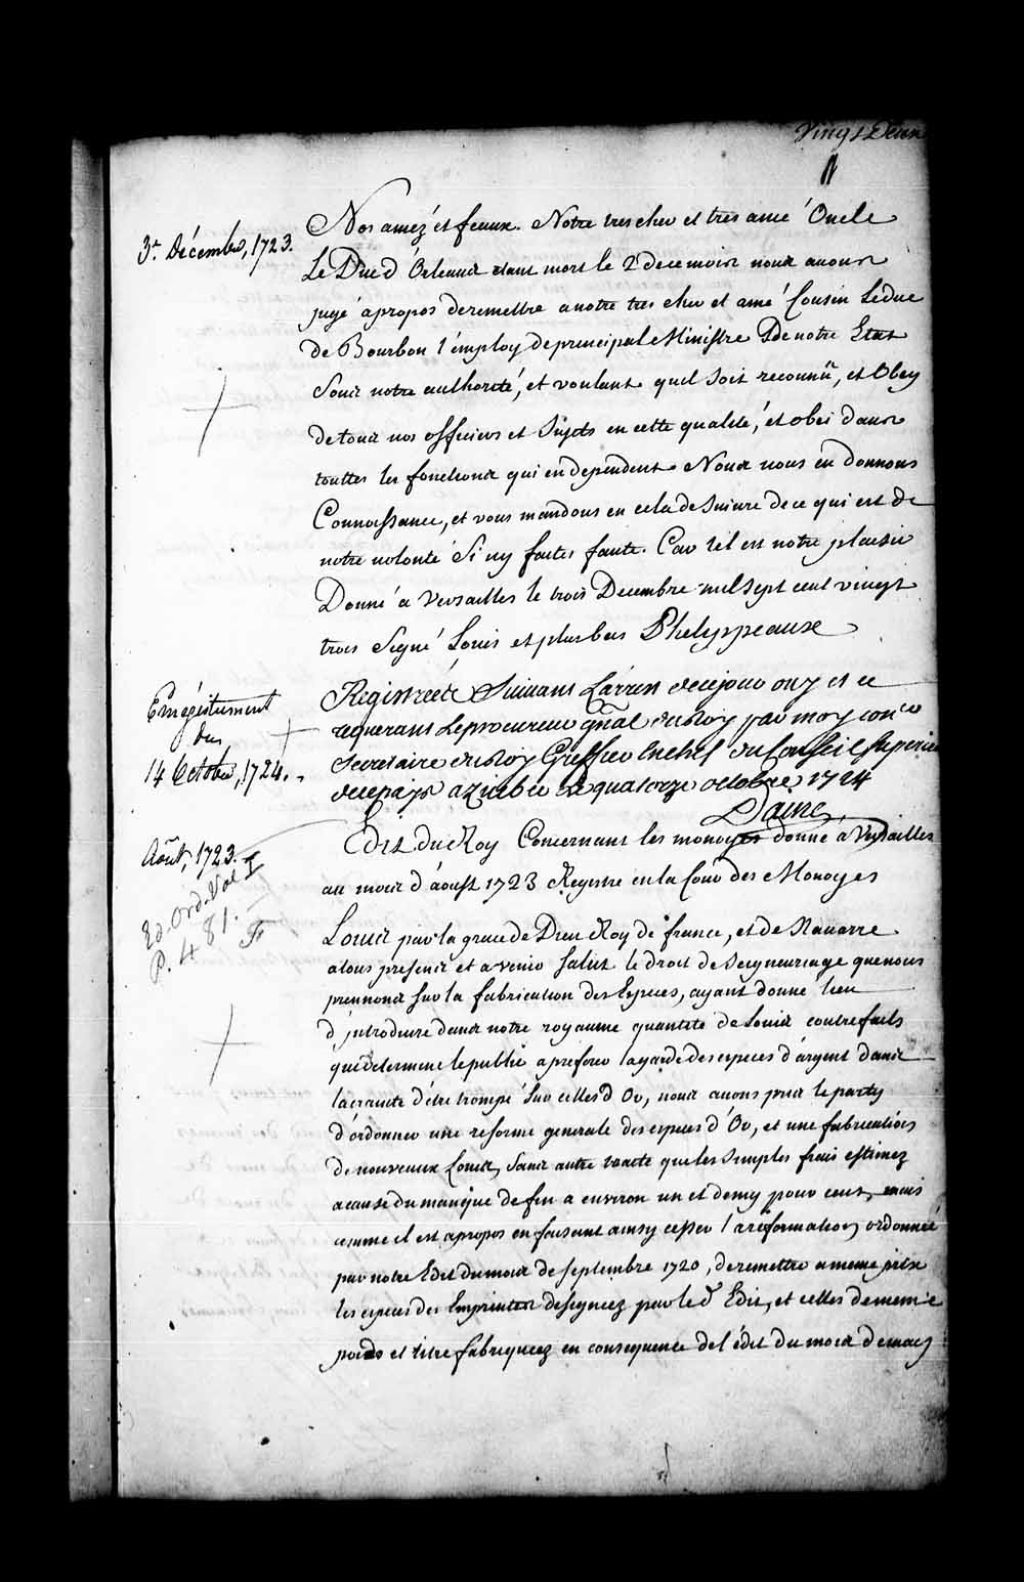 Vingt Deux
3e. Décembre, 1723.
Nos amez et feaux. Notre tres cher et tres amé Oncle
Le Duc d'Orleans etant mort le 2 decembre nous auons
jugé apropos deremettre anotre tres cher et amé Cousin Leduc
de Bourbon l'employ deprincipal Ministre De notre Etat
Sous notre authorité, et voulant quil soit reconnu, et Obey
detous nos officiers et Sujets en cette qualité, et obei dans
touttes les fonctions qui endependent Nous uous en donnons
Connoissance, et vous mandons en cela desuiure de ce qui est de
notre uolonté Si ny faites faute. Car tel est notre plaisir
Donné a Versailles le trois Decembre mil sept cent vingt
trois Signé Louis et plus bas Phelyppeaux
Enrégistrement
du
14 Octobre, 1724.
Registreété Suiuant L'arrest decejour ouy et ce
requerant Leprocureur gñal duRoy par moy conser
Secretaire duRoy Greffier enchef du Conseil Superieur
decepaÿs a quebec Le quatorze octobre 1724
Daine
Août, 1723.
Ed. Ord. Vol I
P. 481.
Edit du Roy Concernant les monoyes donné à Versailles
au mois d'aoust 1723 Registré en la Cour des Monoyes
Louis par la grace de Dieu Roy de france, et de Nauarre
atous presens et a venir Salut le droit de Seigneuriage quenous
prennons Sur la fabrication des Especes, ayant donné lieu
d'introduire dans notre royaume quantité de Louis contrefaits
qui determine le public a preferer la garde des especes d'argent dans
la crainte d'être trompé Sur celles d'Or, nous auons pris le party
d'ordonner une reforme generale des especes d'Or, et une fabrication
de nouueaux Louis, Sans autre traite que les Simples frais estimez
acause du manque de fin a enuiron un et demy pour cent, mais
comme il est apropos en faisant ainsy cesser la reformation ordonnée
par notre Edit du mois de septembre 1720, deremettre a meme prix
les especes des Empreintes designeez par led. Edit, et celles de meme
poids et titre fabriqueez en consequence de l'édit du mois de may